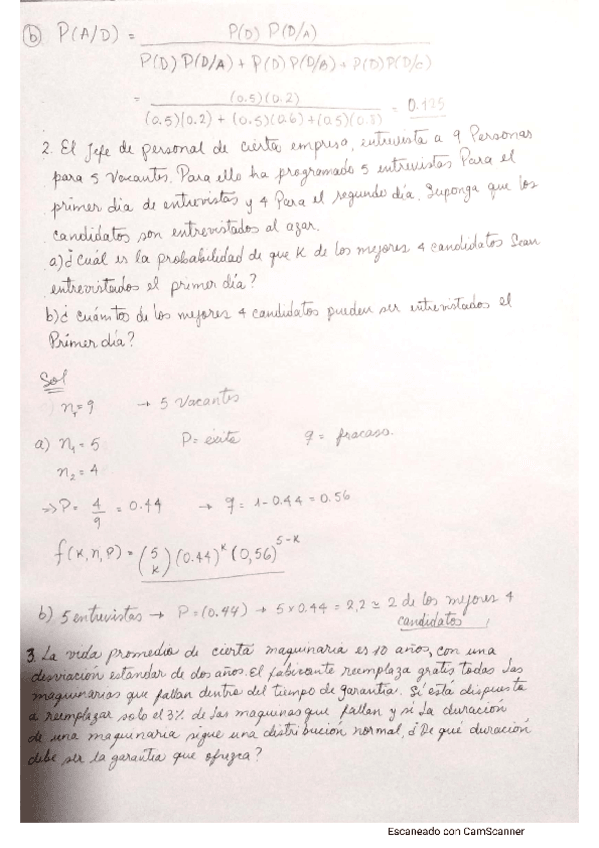 b) P(A/D) = P(D) P(D/A)
P(D) P(D/A) + P(D) P(D/B) + P(D) P(D/C)
= (0.5)(0.2) / (0.5)(0.2) + (0.5)(0.6) + (0.5)(0.3) = 0.125
2. El Jefe de personal de cierta empresa, entrevista a 9 Personas
para 5 Vacantes. Para ello ha programado 5 entrevistas Para el
primer día de entrevistas y 4 Para el segundo día. Suponga que los
candidatos son entrevistados al azar.
a) ¿Cuál es la probabilidad de que K de los mejores 4 candidatos Sean
entrevistados el primer día?
b) ¿cuántos de los mejores 4 candidatos pueden ser entrevistados el
Primer día?
Sol
n = 9 → 5 Vacantes
a) n₁ = 5 P = éxito q = fracaso.
n₂ = 4
⇒ P = 4/9 = 0.44 → q = 1 - 0.44 = 0.56
f(K, n, P) = (5 K) (0.44)^K (0,56)^5-K
b) 5 entrevistas → P = (0.44) → 5 x 0.44 = 2,2 ≃ 2 de los mejores 4
candidatos
3. La vida promedio de cierta maquinaria es 10 años, con una
desviación estándar de dos años. El fabricante reemplaza gratis todas las
maquinarias que fallan dentro del tiempo de garantía. Si está dispuesto
a reemplazar solo el 3% de las maquinas que fallan y si la duración
de una maquinaria sigue una distribución normal, ¿De qué duración
debe ser la garantía que ofrezca?
Escaneado con CamScanner